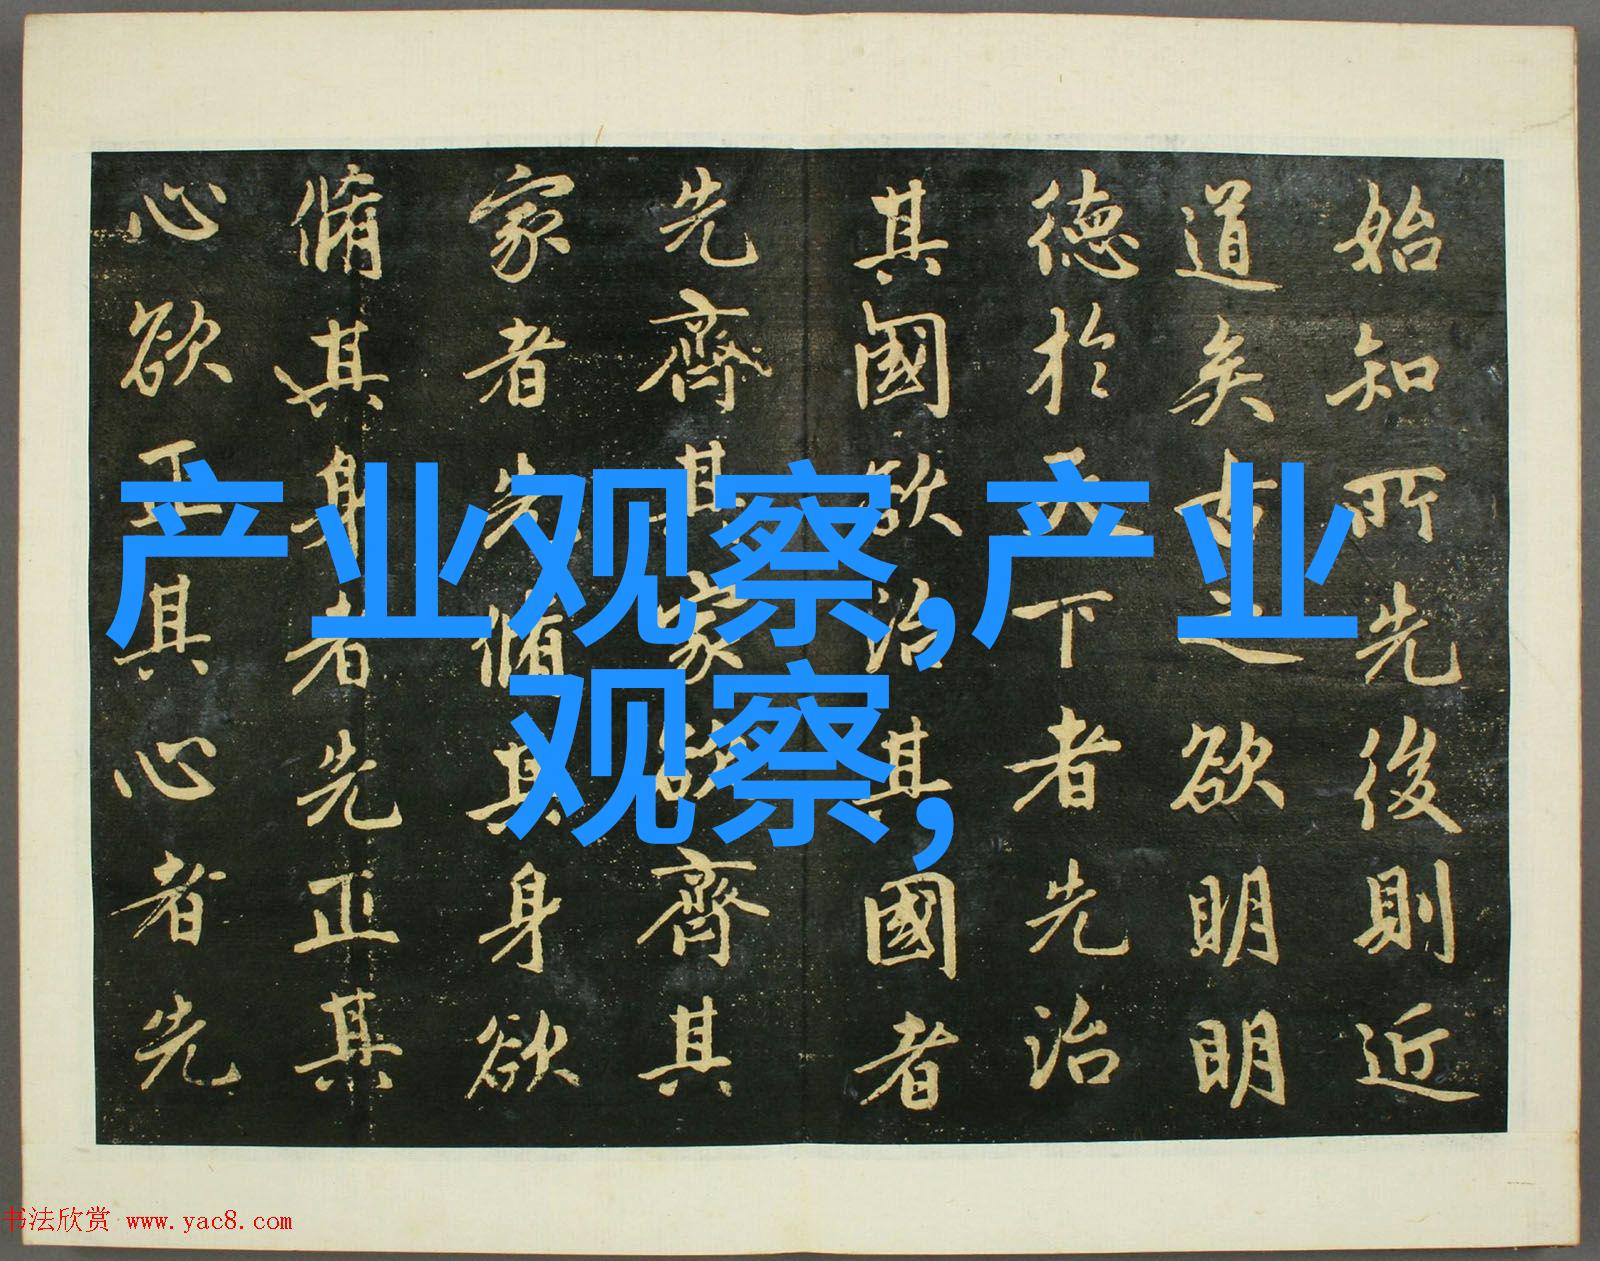 始知所先後則近
道矣古之欲明明
德於天下者先治
其國欲治其國者
先齊其家欲齊其
家者先脩其身欲
脩其身者先正其
心欲正其心者先
产业观察,产业
观察,
书法欣赏 www.yac8.com